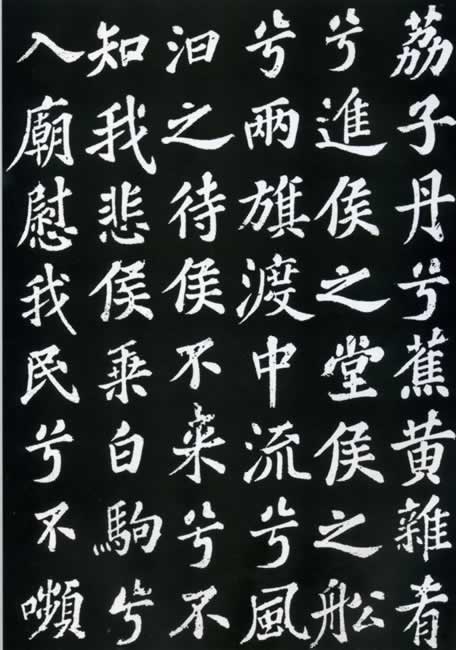 荔子丹兮蕉黄雜肴
兮進侯之堂侯之舩
兮兩旗渡中流兮風
汩之待侯不來兮不
知我悲侯乘白駒兮
入廟慰我民兮不嚬